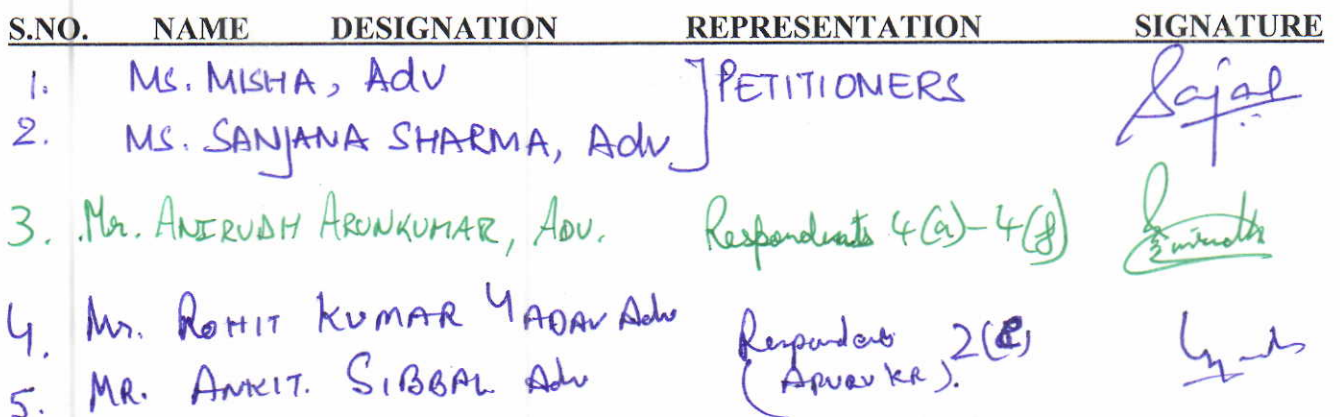 S.NO. NAME DESIGNATION REPRESENTATION SIGNATURE
1. Ms. MISHA, Adv ] PETITIONERS Sajal
2. MS. SANJANA SHARMA, Adv
3. Mr. ANIRUDH ARUNKUMAR, ADV. Respondents 4(a)-4(f) Anirudh
4. Mr. ROHIT KUMAR YADAV Adv Respondents 2(e)
5. MR. ANKIT. SIBBAL Adv (APURV KR).